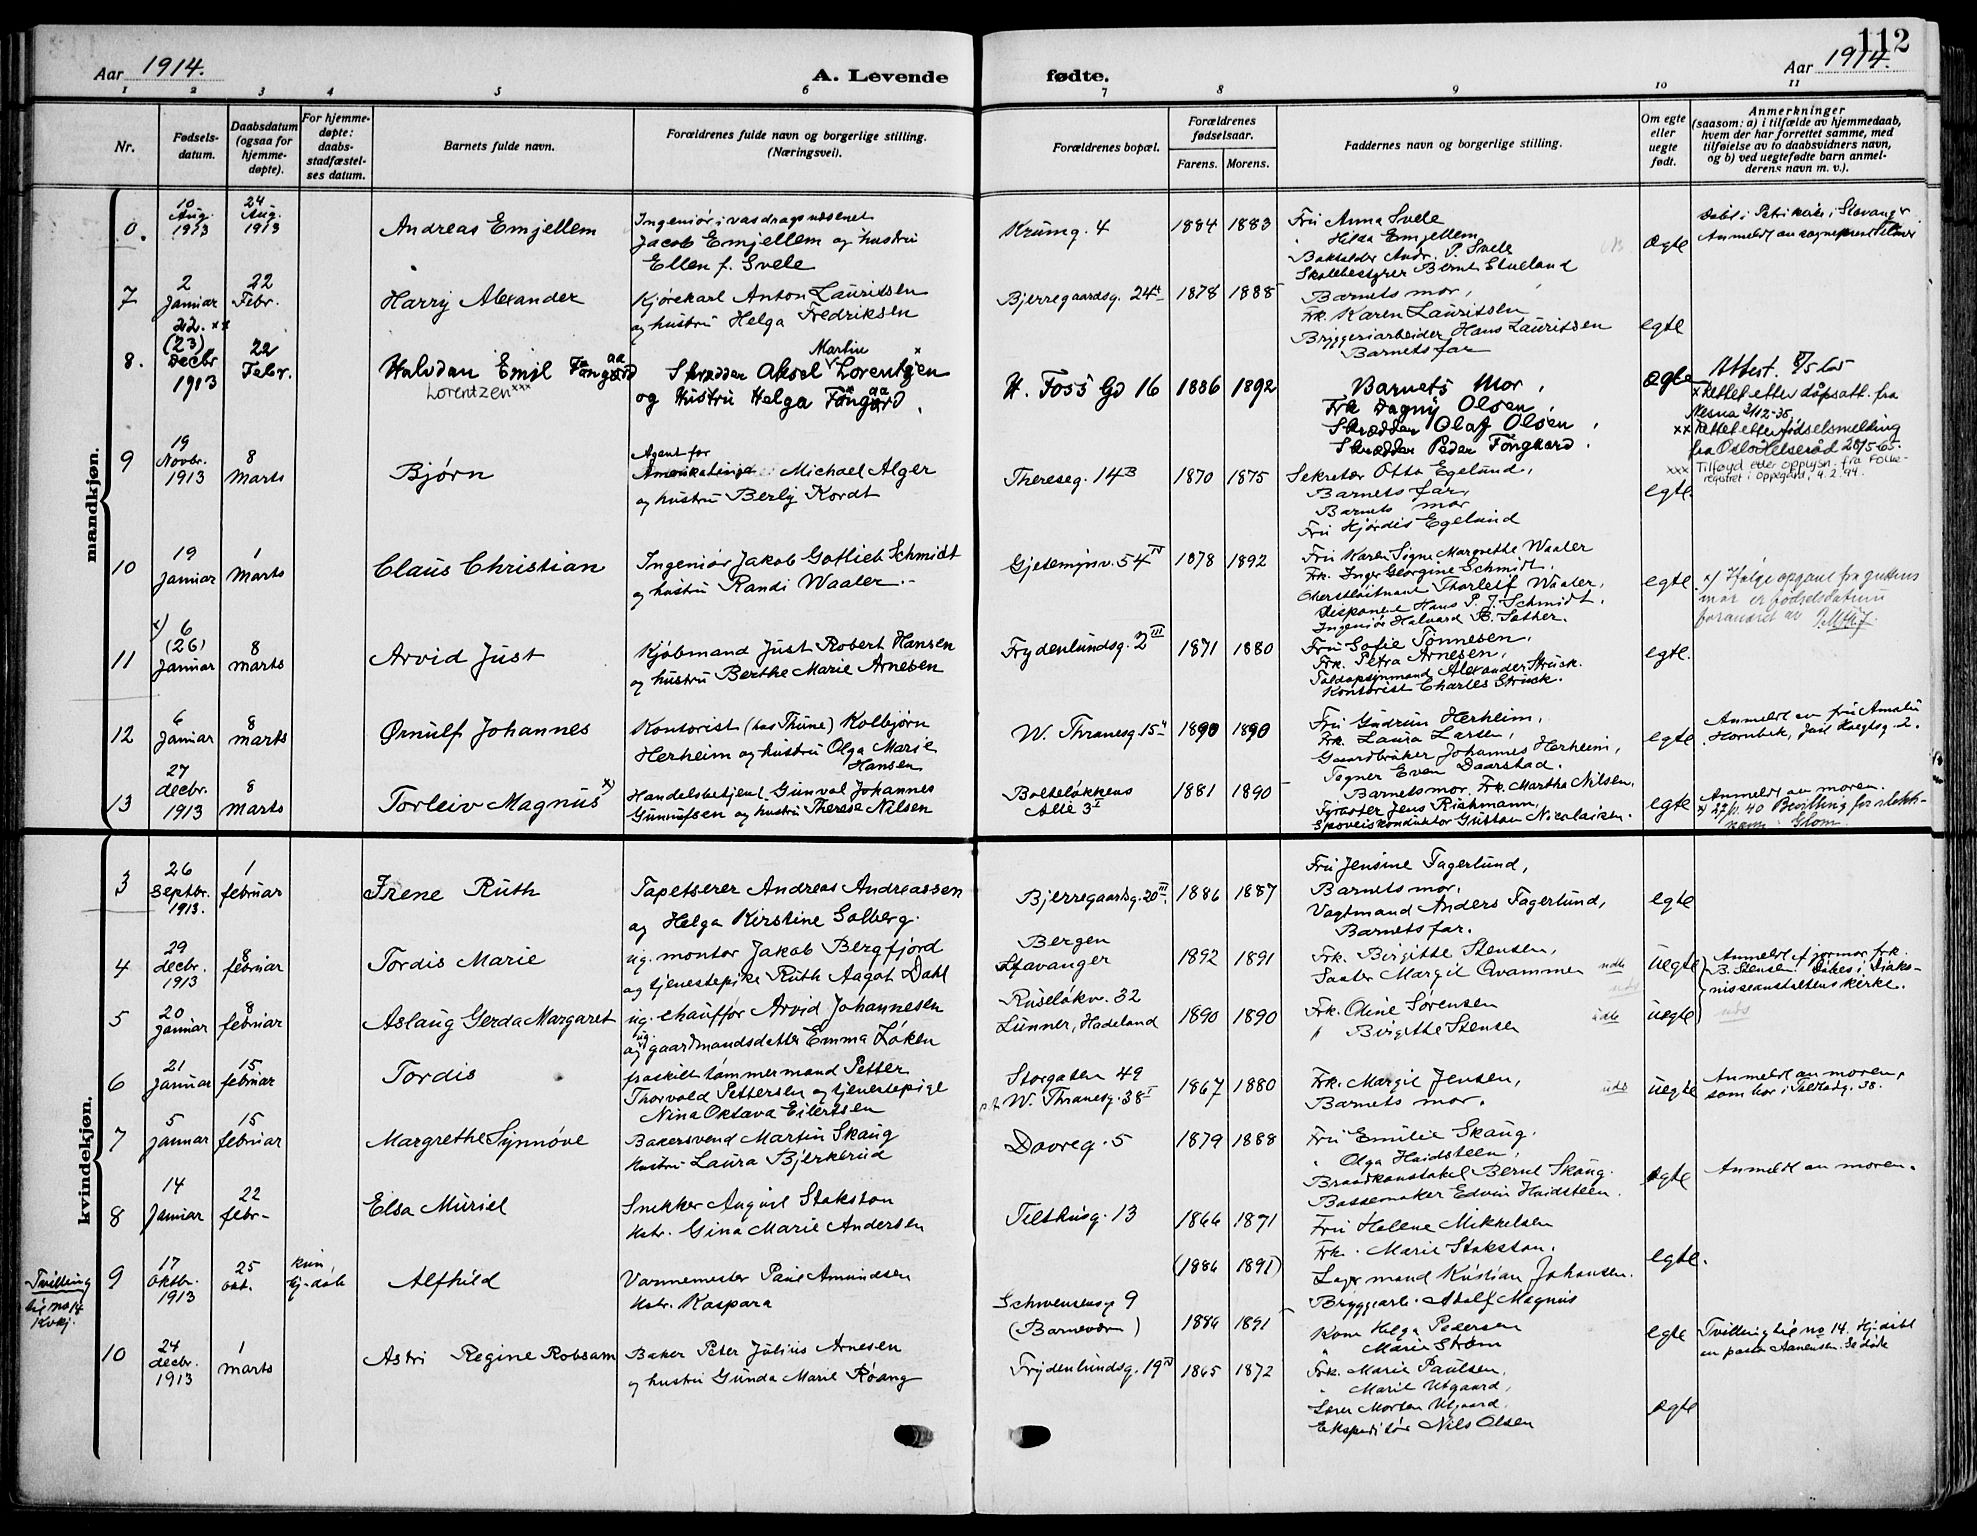 112
Aar 1914.
A. Levende fødte.
Aar 1914.
1 2 3 4 5 6 7 8 9 10 11
Nr.
Fødsels-
datum.
Daabsdatum
(ogsaa for
hjemme-
døpte).
For hjemme-
døpte:
daabs-
stadfæstel-
ses datum.
Barnets fulde navn.
Forældrenes fulde navn og borgerlige stilling.
(Næringsvei).
Forældrenes bopæl.
Forældrenes
fødselsaar.
Farens. Morens.
Faddernes navn og borgerlige stilling.
Om egte
eller
uegte
født.
Anmerkninger
(saasom: a) i tilfælde av hjemmedaab,
hvem der har forrettet samme, med
tilføielse av to daabsvidners navn,
og b) ved uegtefødte barn anmel-
derens navn m. v.).
mandkjøn.
0.
10
Aug.
1913
24
Aug.
1913
Andreas Emjellem
Ingeniør i vasdragsvæsenet
Jacob Emjellem og hustru
Ellen f. Svele
Krumg. 4
1884 1883
Fru Anna Svele
" Helda Emjellem
Bokholder Andr. P. Svele
Skolebestyrer Bernt Stueland
ægte
Døbt i Petrikirke i Stavanger
7
2
Januar
22
Febr.
Harry Alexander
Kjørekarl Anton Lauritsen
og hustru Helga Fredriksen
Bjerregaardsg. 24
1878 1888
Barnets mor,
Frk. Karen Lauritsen
Bryggeriarbeider Hans Lauritsen
Barnets far
egte
8.
22. xx
(23)
Decbr
1913
22
Febr.
Halvdan Emil Fongaard
Lorentzen xxx
Skrædder Aksel Martin Lorentzen
og Hustru Helga Fongaard.
H. Foss Gd 16
1886 1892
Barnets Mor,
Frk Dagny Olsen,
Skrædder Olaf Olsen,
Skrædder Peder Fongaard.
ægte
Attest. 8/5 65
x Rettet etter dåpsatt. fra
Nesna 2/12-35.
xx Rettet etter fødselsmelding
fra Oslo Helseråd 28/5-65.
xxx Tilføyd etter opplysn. fra Folke-
registret i Oppegård, 4.2.94.
9
19
Novbr.
1913
8
Marts
Bjørn
Agent for
Amerikalinje Michael Alger
og hustru Berly Kordt
Thereseg. 14B
1870 1875
Sekretær Otto Egeland,
Barnets far,
Barnets mor
Fru Hjørdis Egeland
egte
10
19
Januar
1
Marts
Claus Christian
Ingeniør Jakob Gotlieb Schmidt
og hustru Randi Waaler.
Gjetemyrsv. 54 IV
1878 1892
Fru Karen Signe Margrethe Waaler
Frk. Inger Georgine Schmidt.
Oberstløitnant Thorleif Waaler,
Disponent Hans P. J. Schmidt.
Ingeniør Halvard B. Sæther.
egte
x) Ifølge opgave fra guttens
mor er fødselsdatum
forandret av
11
x) 6
(26)
Januar
8
marts
Arvid Just
Kjøbmand Just Robert Hansen
og hustru Berthe Marie Arnesen
Frydenlundsg. 2 III
1871 1880
Fru Sofie Tønnesen,
Frk. Petra Arnesen,
Toldopsynmand Alexander Struck.
Kontorist Charles Struck.
egte.
12
6
Januar
8
marts
Ørnulf Johannes
Kontorist (hos Thune) Kolbjørn
Herheim og hustru Olga Marie
Hansen
W. Thranesg. 15
1890 1890
Fru Gudrun Herheim,
Frk. Laura Larsen,
Gaardbruker Johannes Herheim,
Tegner Even Daarstad.
egte
Anmeldt av fru Amalie
Hornbek, Jail Haegtsg. 2.
13
27
decbr.
1913
8
Marts
Torleiv Magnus x)
Handelsbetjent Gunval Johannes
Gunnufsen og hustru Therese Nilsen
Bolteløkkens
Alle 3 I
1881 1890
Barnets mor. Frk. Martha Nilsen.
Fyrbøter Jens Rishmann,
Sporveiskonduktør Gustav Nicolaisen.
egte
Anmeldt av moren.
x) 27/1. 40 Bevilling for slekts-
navn Glom
kvindekjøn.
3
26
Septbr.
1913.
1
februar
Irene Ruth
Tapetserer Andreas Andreassen
og Helga Kirstine Solberg.
Bjerregaardsg. 20 III
1886 1887
Fru Jensine Fagerlund,
Barnets mor.
Vagtmand Anders Fagerlund,
Barnets far.
egte
4
29
decbr.
1913
8
februar
Tordis Marie
ug. montør Jakob Bergfjord
og tjenestepike Ruth Aagot Dahl
Bergen
Stavanger
1892 1891
Frk. Birgitte Stensen,
Søster Margit Qvammen
uegte
Anmeldt af jormor frk.
B. Stensen. Døbes i Diako-
nisseanstaltens kirke.
5
20
januar
8
februar
Aslaug Gerda Margaret
ug. chauffør Arvid Johannesen
og ug. gaardmandsdatter Emma Løken
Ruseløkv. 32
Lunner, Hadeland
1890 1890
Frk. Oline Sørensen
" Birgitte Stensen
uegte
6
21
januar
15
februar
Tordis
fraskilt tømmermand Petter
Thorvald Pettersen og tjenestepige
Nina Oktava Eilertsen
Storgaten 49
W. Thranesg. 38 I
1867 1880
Frk. Margit Jensen,
Barnets mor.
uegte
Anmeldt av moren,
som bor i Toftesg. 38.
7
5
januar
15
februar
Margrethe Synnøve
Bakersvend Martin Skaug
hustru Laura Bjerkerud
Dovreg. 5
1879 1888
Fru Emilie Skaug.
" Olga Haidsteen,
Brandkonstabel Bernt Skaug.
Bøssemaker Edvin Haidsteen.
ægte
Anmeldt av moren.
8
14
Januar
22
febr.
Elsa Muriel
Snekker August Stokstøn
Hstr. Gina Marie Andersen
Tilthusg. 13
1866 1871
Fru Helene Mikkelsen
Frk. Marie Stokston.
Lagermand Kristian Johansen.
Bryggearb. Adolf Magnus
egte.
Tvilling
til no 14
Kvkj.
9
17
Oktbr.
1913
25
okt.
kun,
Hj-døb
Alfhild
Varmemester Paul Amundsen
Hstr. Kaspara
Schwensensg 9
(Barnevær )
(1886 1891)
1886 1891
Kone Helga Pedersen
" Marie Strøm
egte
Tvilling til no 14. Hj.døbt
av pastor Aanensen.
10
24
decbr.
1913
1
marts
Astri Regine Robsam
Baker Peter Julius Arnesen
og hustru Gunda Marie Roang
Frydenlundsg. 19 IV
1865 1872
Frk. Marie Paulsen,
" Marie Utgaard,
Lærer Morten Utgaard.
Ekspeditør Nils Olsen
ægte